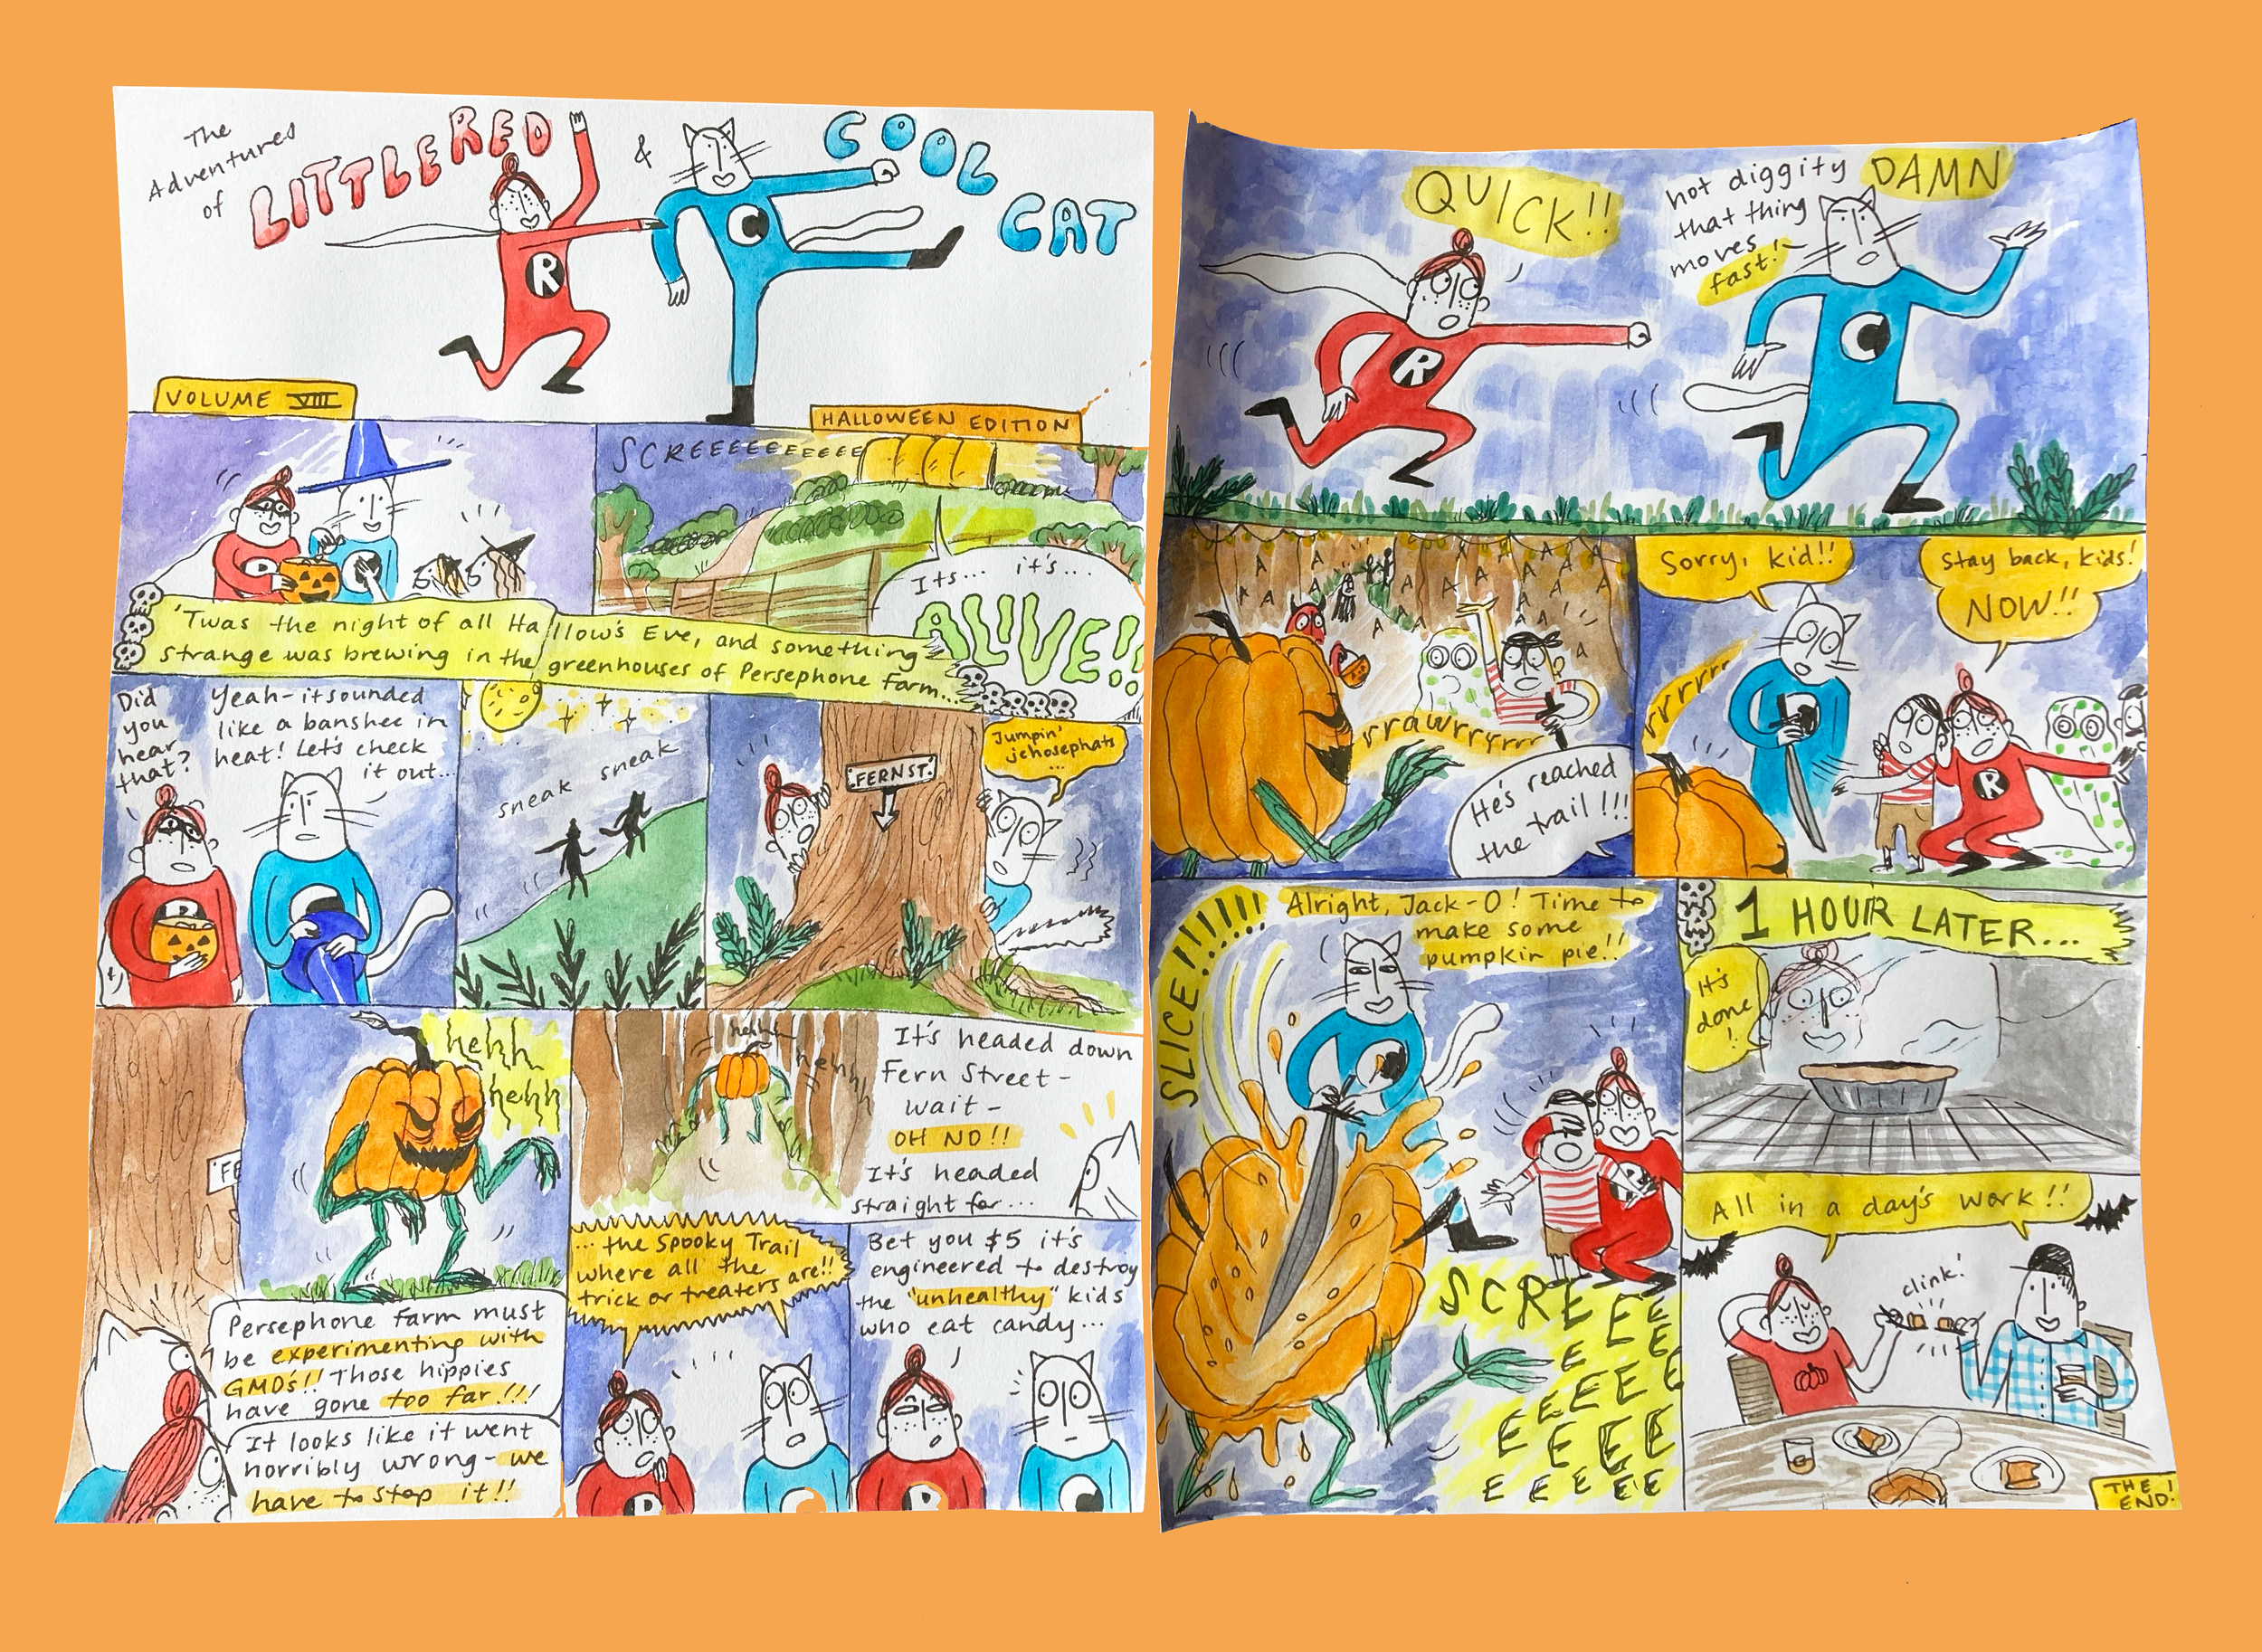 The
Adventures
of
LITTLE RED
&
COOL
CAT
R
C
VOLUME VIII
HALLOWEEN EDITION
SCREEEEEEEEEEE
It's... it's...
ALIVE!!
'Twas the night of all Hallow's Eve, and something
strange was brewing in the greenhouses of Persephone Farm...
Did
you
hear
that?
Yeah - it sounded
like a banshee in
heat! Let's check
it out...
sneak sneak
FERN ST.
Jumpin'
jehosephats
...
hehh
hehh
FE
Persephone Farm must
be experimenting with
GMO's!! Those hippies
have gone too far!!!
It looks like it went
horribly wrong - we
have to stop it!!
hehh
hehh
It's headed down
Fern Street -
wait -
OH NO!!
It's headed
straight for...
... the Spooky Trail
where all the
trick or treaters are!!
R
C
Bet you $5 it's
engineered to destroy
the "unhealthy" kids
who eat candy...
R
C
QUICK!!
hot diggity DAMN
that thing
moves
fast!
R
C
A A A A A A A A A A
rrawrryrrr
He's reached
the trail!!!
Sorry, kid!!
Stay back, kids!
NOW!!
rrrrrr
R
SLICE!!!!!!!
Alright, Jack-O! Time to
make some
pumpkin pie!!
SCREEE
EEEEEEEEEEEEEEEEEE
1 HOUR LATER...
It's
done
!
All in a day's work!!
clink!
THE
END!